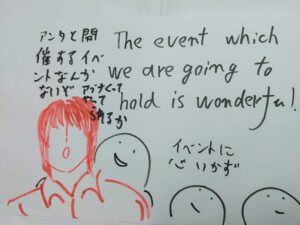 アンタと開
催するイベ
ントなんか
ないぞ
アブナくって
やって
られるか
The event which
we are going to
hold is wonderful!
イベントに
心いかず